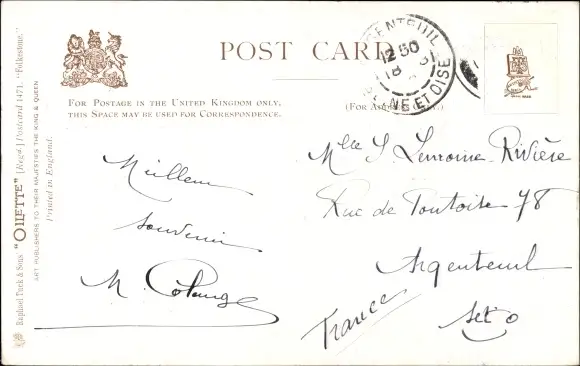 POST CARD
FOR POSTAGE IN THE UNITED KINGDOM ONLY,
THIS SPACE MAY BE USED FOR CORRESPONDENCE.
(FOR ADDRESS ONLY.)
Raphael Tuck & Sons' "OILETTE" [Regd.] Postcard 1471. "Folkestone."
ART PUBLISHERS TO THEIR MAJESTIES THE KING & QUEEN
Printed in England.
ARGENTEUIL
12 50
18
SEINE ET OISE
Meilleur
souvenir
M.
Mlle S. Rivière
Rue de Pontoise 78
Argenteuil
Set O
France